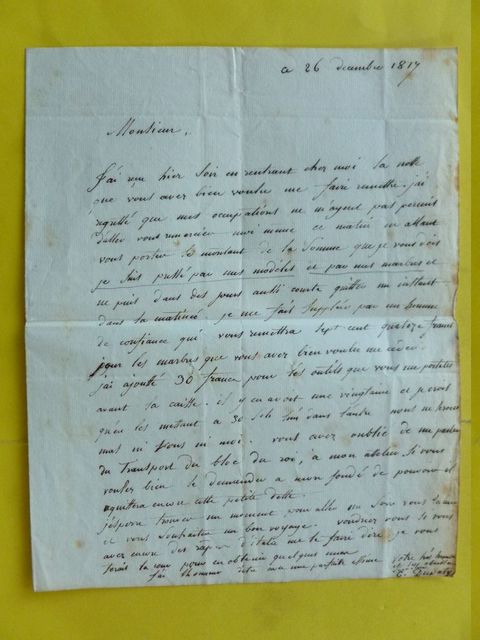 ce 26 decembre 1817
Monsieur,
J'ai reçu hier soir en rentrant chez moi la note
que vous avez bien voulu me faire remettre. j'ai
regretté que mes occupations ne m'ayent pas permis
d'aller vous remercier moi meme ce matin en allant
vous porter le montant de la somme que je vous dois
je suis pressé par mes modeles et par mes marbres et
ne puis dans des jours aussi courts quitter un instant
dans la matinée je me fais suppléer par un homme
de confiance qui vous remettra sept cent quatorze francs
pour les marbres que vous avez bien voulu me céder.
j'ai ajouté 30 francs pour les outils que vous me portates
avant la caisse. il y en avoit une vingtaine et
30
dans nous ne
mas ni vous ni moi. vous avez oublié de me parler
du transport du bloc du roi, a mon atelier. si vous
voulez bien le demander a mon fondé de pouvoir il
aquittera encore cette petite dette.
j'espere trouver un moment pour aller un soir vous
et vous souhaiter un bon voyage. voudriez vous si vous
avez encore des rapes d'italie me le faire dire je vous
serais pour en obtenir quelques unes
j'ai l'honneur d'être avec une parfaite estime
votre très humble
et